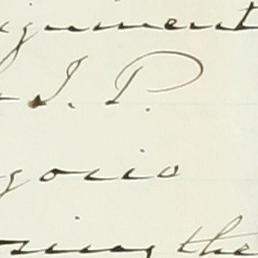 ignment
J. P.
gorio
sing the